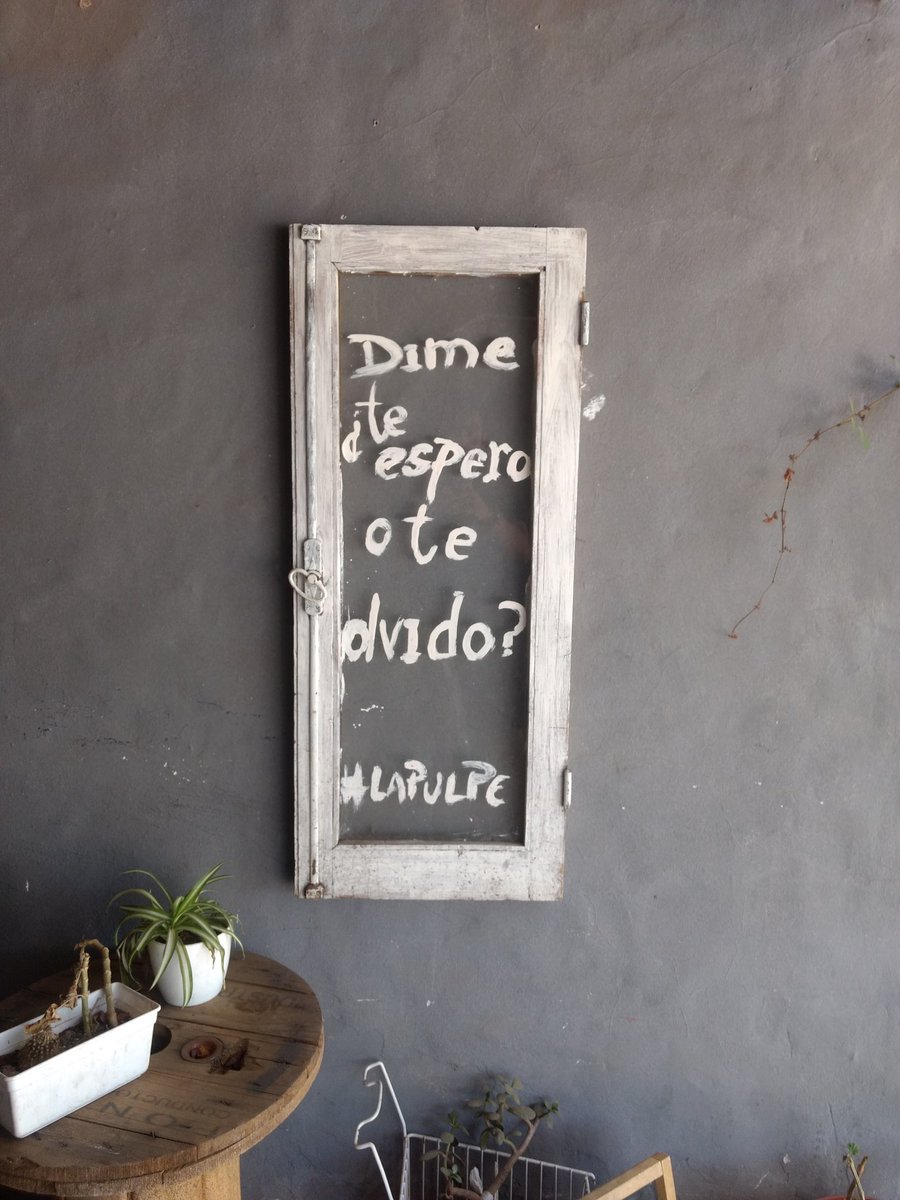 Dime
¿te
espero
o te
olvido?
#LAPULPE
CONDUCTO